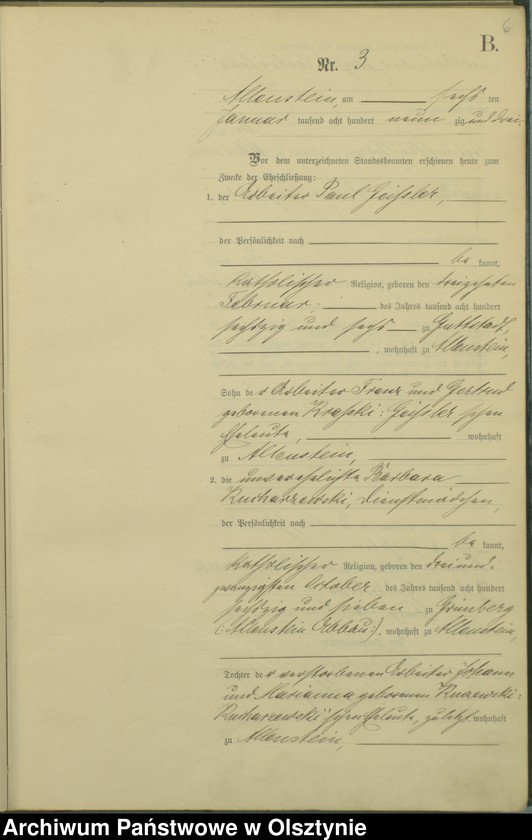 6
B.
Nr. 3
Allenstein, am sechs ten
Januar tausend acht hundert neun zig und drei.
Vor dem unterzeichneten Standesbeamten erschienen heute zum
Zwecke der Eheschließung:
1. der Arbeiter Paul Geißler,
der Persönlichkeit nach
be kannt,
katholischer Religion, geboren den dreizehnten
Februar, des Jahres tausend acht hundert
sechszig und sechs zu Guttstadt,
, wohnhaft zu Allenstein,
Sohn des Arbeiter Franz und Gertrud
geborenen Geißler schen
Eheleute, wohnhaft
zu Allenstein,
2. die unverehelichte Barbara
Kucharzewski, Dienstmädchen,
der Persönlichkeit nach
be kannt,
katholischer Religion, geboren den dreiund-
zwanzigsten October des Jahres tausend acht hundert
sechszig und sieben zu Grünberg
(: Allenstein Abbau :), wohnhaft zu Allenstein,
Tochter der verstorbenen Arbeiter Johann
und Marianna geborenen
Kucharzewski'schen Eheleute, zuletzt wohnhaft
zu Allenstein,
Archiwum Państwowe w Olsztynie